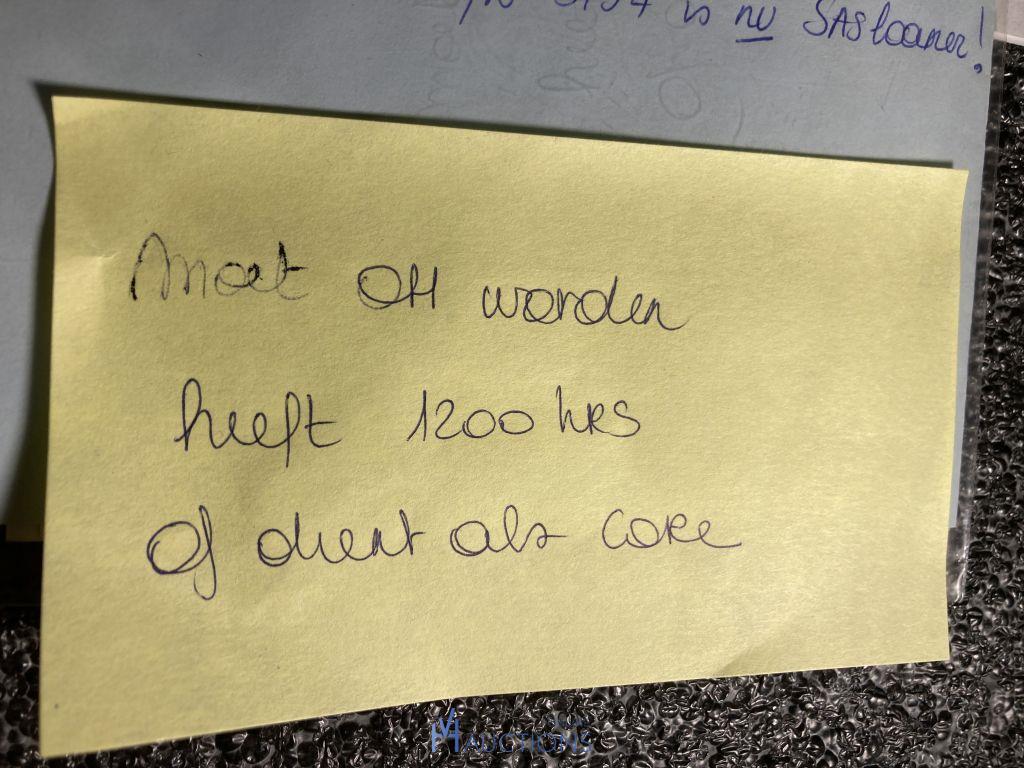 is nu SAS loaner!
Moet OH worden
heeft 1200 hRS
Of dient als CORE
AUCTIONS